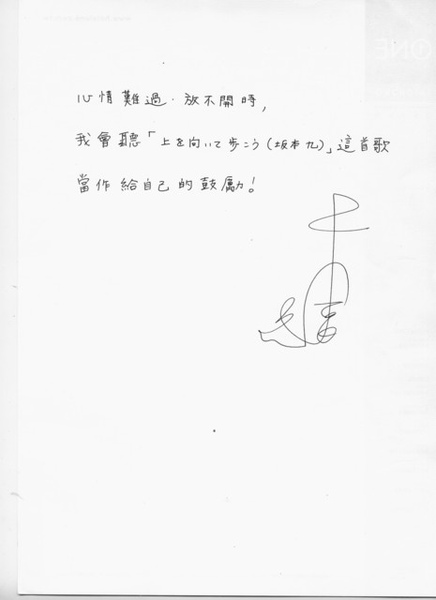 心情難過．放不開時，
我會聽「上を向いて歩こう（坂本九）」這首歌
當作給自己的鼓勵！